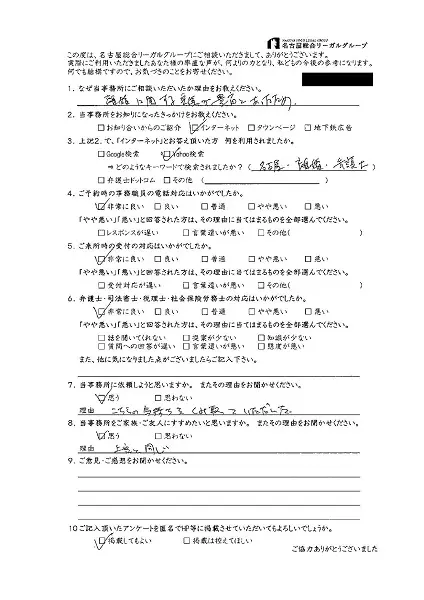 NAGOYA SOGO LEGAL GROUP
名古屋総合リーガルグループ
この度は、名古屋総合リーガルグループにご相談いただきまして、ありがとうございます。
実際にご利用いただきましたあなた様の率直な声が、何よりの力となり、私どもの今後の参考になります。
何でも結構ですので、お気づきのことをお寄せください。
1.なぜ当事務所にご相談いただいたか理由をお教えください。
離婚に関する
2.当事務所をお知りになったきっかけをお教えください。
□お知り合いからのご紹介 ☑インターネット □タウンページ □地下鉄広告
3.上記2.で、「インターネット」とお答え頂いた方 何を利用されましたか。
□Google検索 ☑Yahoo検索
⇒どのようなキーワードで検索されましたか?(名古屋・離婚・弁護士)
□弁護士ドットコム □その他( )
4.ご予約時の事務職員の電話対応はいかがでしたか。
☑非常に良い □良い □普通 □やや悪い □悪い
「やや悪い」「悪い」と回答された方は、その理由に当てはまるものを全部選んでください。
□レスポンスが遅い □言葉遣いが悪い □その他( )
5.ご来所時の受付の対応はいかがでしたか。
☑非常に良い □良い □普通 □やや悪い □悪い
「やや悪い」「悪い」と回答された方は、その理由に当てはまるものを全部選んでください。
□受付対応が遅い □言葉遣いが悪い □その他( )
6.弁護士・司法書士・税理士・社会保険労務士の対応はいかがでしたか。
☑非常に良い □良い □普通 □やや悪い □悪い
「やや悪い」「悪い」と回答された方は、その理由に当てはまるものを全部選んでください。
□話を聞いてくれない □提案が少ない □知識が少ない
□質問への回答が遅い □言葉遣いが悪い □態度が悪い
また、他に気になりました点がございましたらご記入下さい。
7.当事務所に依頼しようと思いますか。 またその理由をお聞かせください。
☑思う □思わない
理由 こちらの気持ちをくみ取っていただいた
8.当事務所をご家族・ご友人にすすめたいと思いますか。 またその理由をお聞かせください。
☑思う □思わない
理由 上記と同じ
9.ご意見・ご感想をお聞かせください。
10ご記入頂いたアンケートを匿名でHP等に掲載させていただいてもよろしいでしょうか。
☑掲載してもよい □掲載は控えてほしい
ご協力ありがとうございました